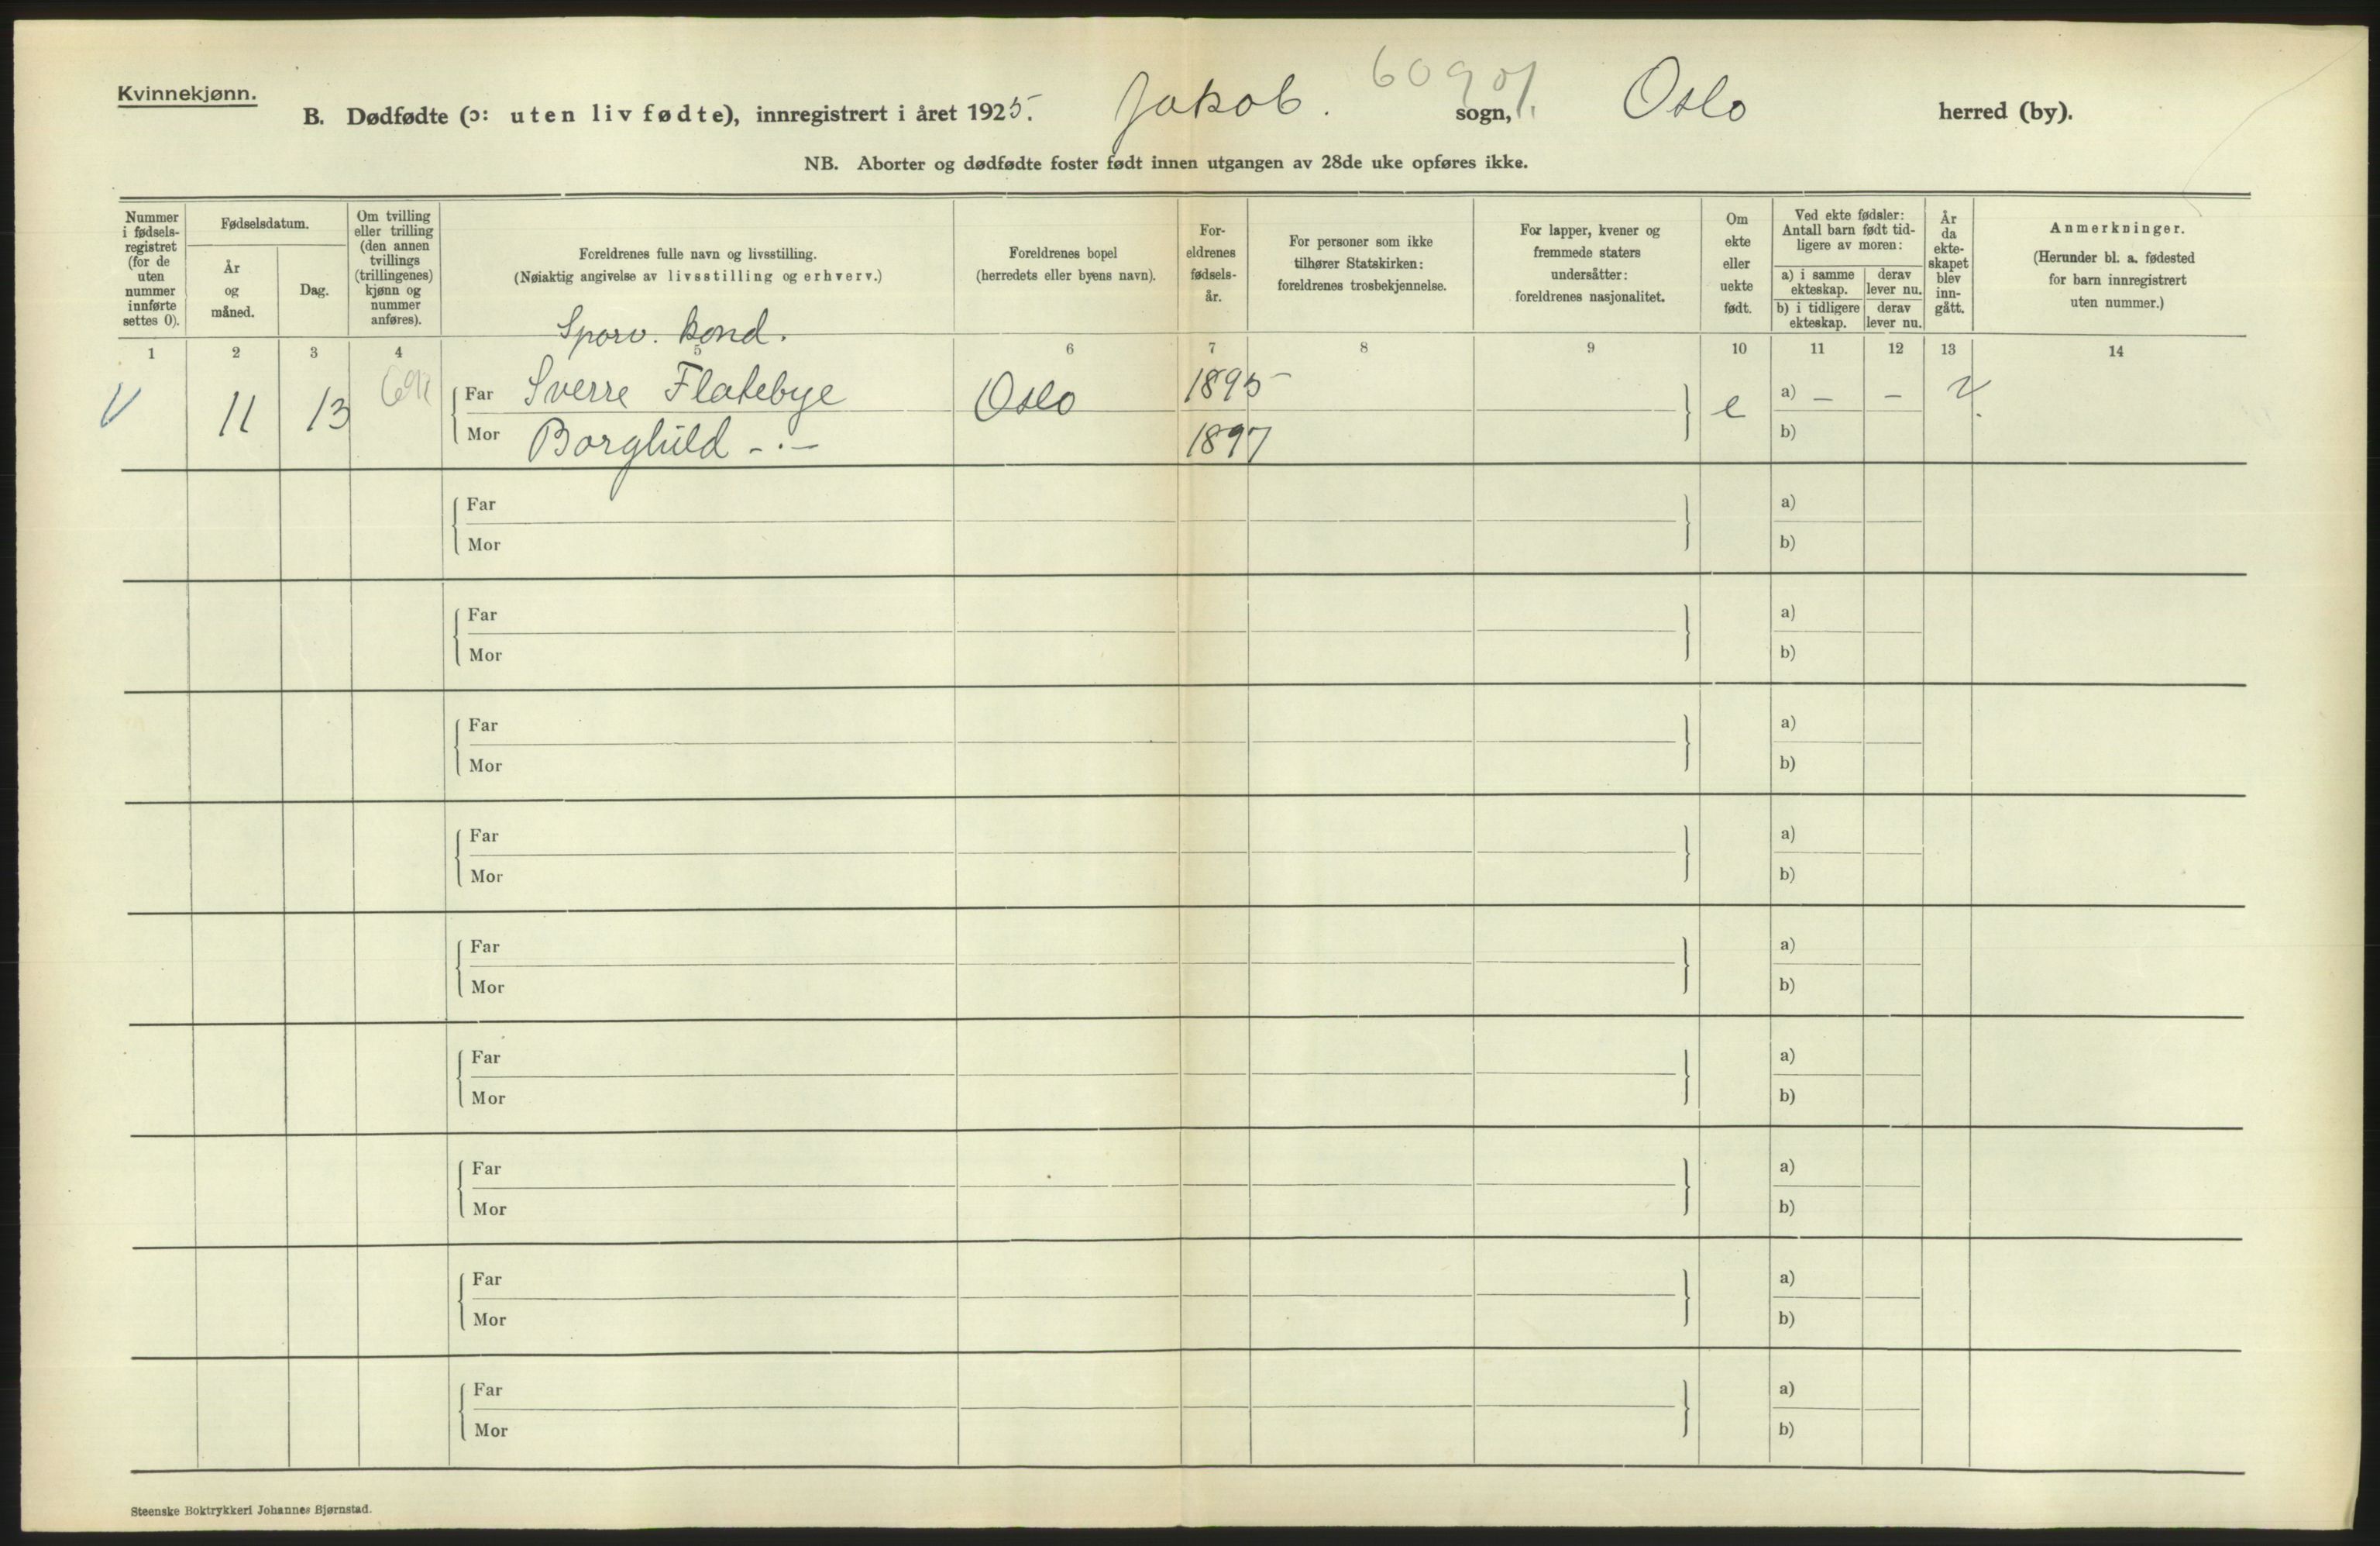 Kvinnekjønn.
B. Dødfødte (ɔ: uten liv fødte), innregistrert i året 1925. Jakob. sogn, Oslo herred (by).
NB. Aborter og dødfødte foster født innen utgangen av 28de uke opføres ikke.
Nummer
i fødsels-
registret
(for de
uten
nummer
innførte
settes 0).
Fødselsdatum.
År
og
måned.
Dag.
Om tvilling
eller trilling
(den annen
tvillings
(trillingenes)
kjønn og
nummer
anføres).
Foreldrenes fulle navn og livsstilling.
(Nøiaktig angivelse av livsstilling og erhverv.)
Foreldrenes bopel
(herredets eller byens navn).
For-
eldrenes
fødsels-
år.
For personer som ikke
tilhører Statskirken:
foreldrenes trosbekjennelse.
For lapper, kvener og
fremmede staters
undersåtter:
foreldrenes nasjonalitet.
Om
ekte
eller
uekte
født.
Ved ekte fødsler:
Antall barn født tid-
ligere av moren:
a) i samme
ekteskap.
derav
lever nu.
b) i tidligere
ekteskap.
derav
lever nu.
År
da
ekte-
skapet
blev
inn-
gått.
Anmerkninger.
(Herunder bl. a. fødested
for barn innregistrert
uten nummer.)
1 2 3 4 5 6 7 8 9 10 11 12 13 14
Sporv. kond.
11 13 Far Sverre Flatebye Oslo 1895 e a) – –
Mor Borghild -·- 1897 b)
Far a)
Mor b)
Far a)
Mor b)
Far a)
Mor b)
Far a)
Mor b)
Far a)
Mor b)
Far a)
Mor b)
Far a)
Mor b)
Far a)
Mor b)
Far a)
Mor b)
Steenske Boktrykkeri Johannes Bjørnstad.